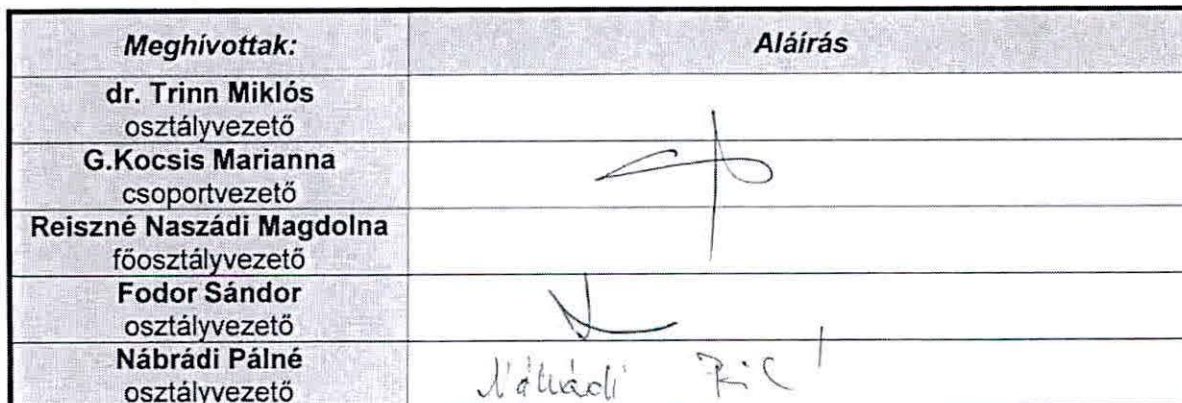 Meghívottak: Aláírás
dr. Trinn Miklós
osztályvezető
G.Kocsis Marianna
csoportvezető
Reiszné Naszádi Magdolna
főosztályvezető
Fodor Sándor
osztályvezető
Nábrádi Pálné
osztályvezető
Nábrádi